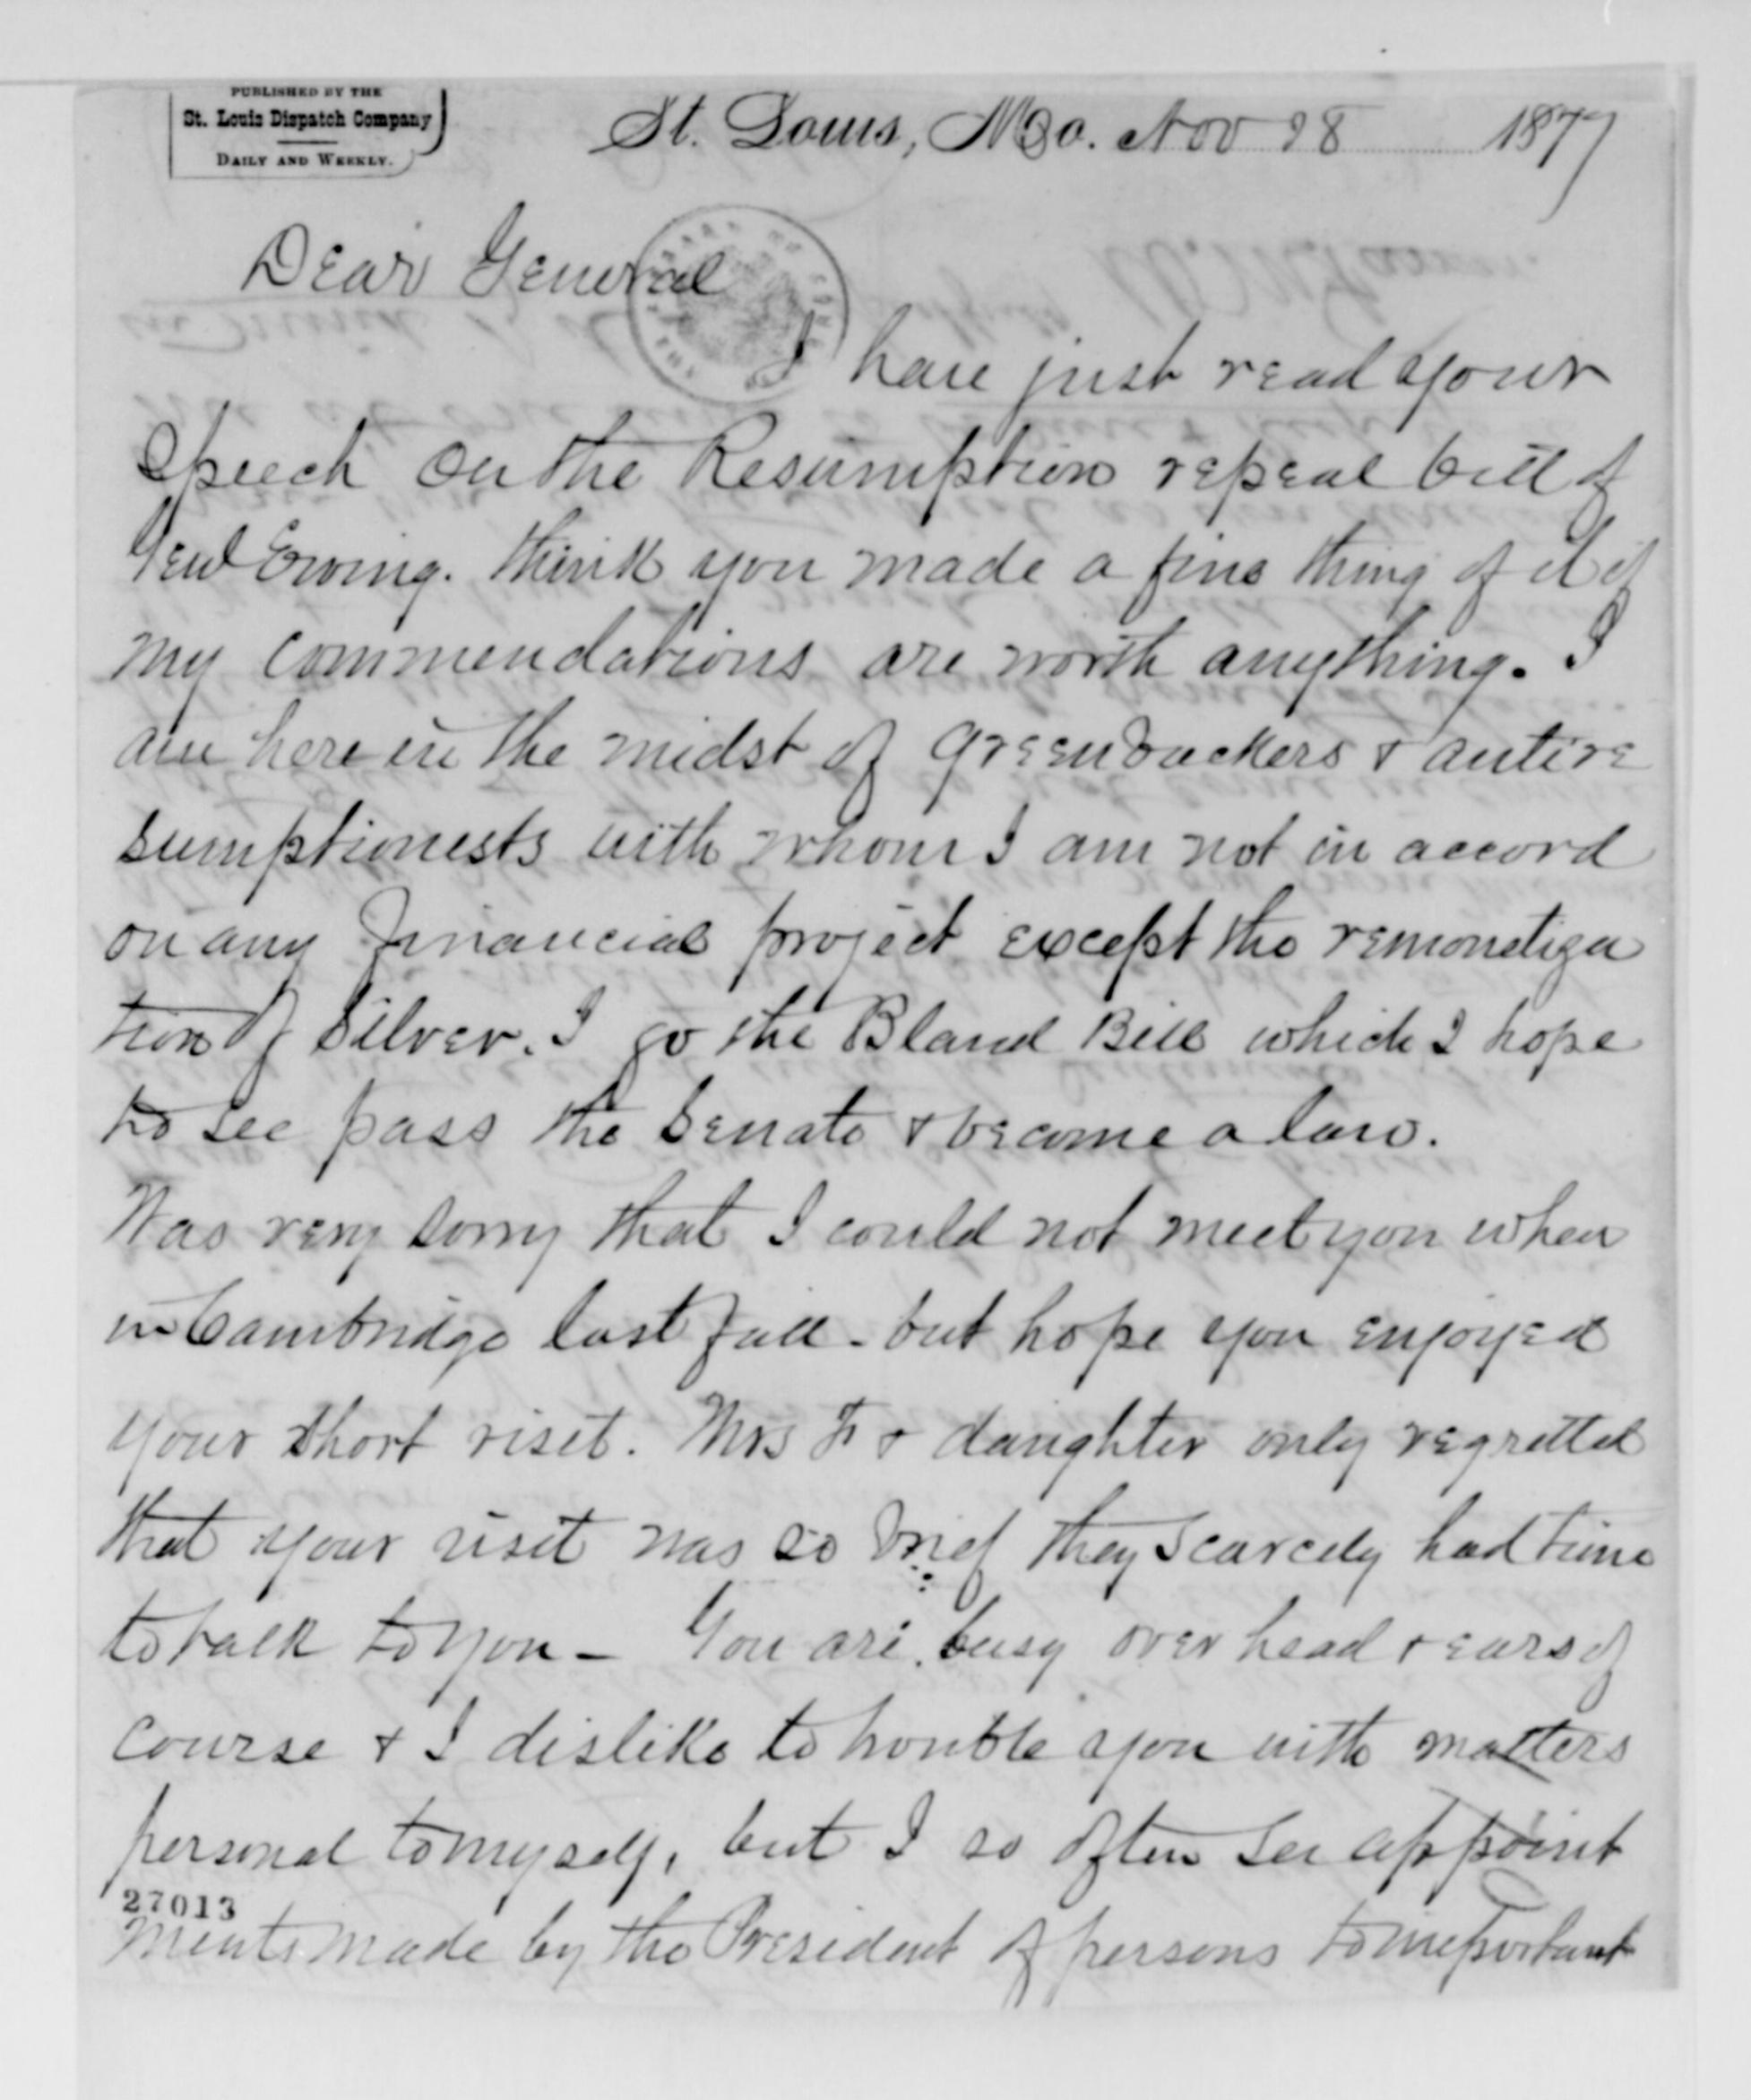 PUBLISHED BY THE
St. Louis Dispatch Company
DAILY AND WEEKLY.
St. Louis, Mo. Nov 28 1877
Dear General
I have just read your
speech on the Resumption repeal bill of
Genl Ewing. think you made a fine thing of it if
my commendations are worth anything. I
am here in the midst of greenbackers & antire
sumptionests with whom I am not in accord
on any financial project except the remonetiza
tion of silver. I go the Bland Bill which I hope
to see pass the Senate & become a law.
Was very sorry that I could not meet you when
in Cambridge last fall - but hope you enjoyed
your short visit. Mrs F & daughter only regretted
that your visit was so brief they scarcely had time
to talk to you - You are busy over head & ears of
course & I dislike to trouble you with matters
personal to myself, but I so often see appoint
27013
ments made by the President of persons to important